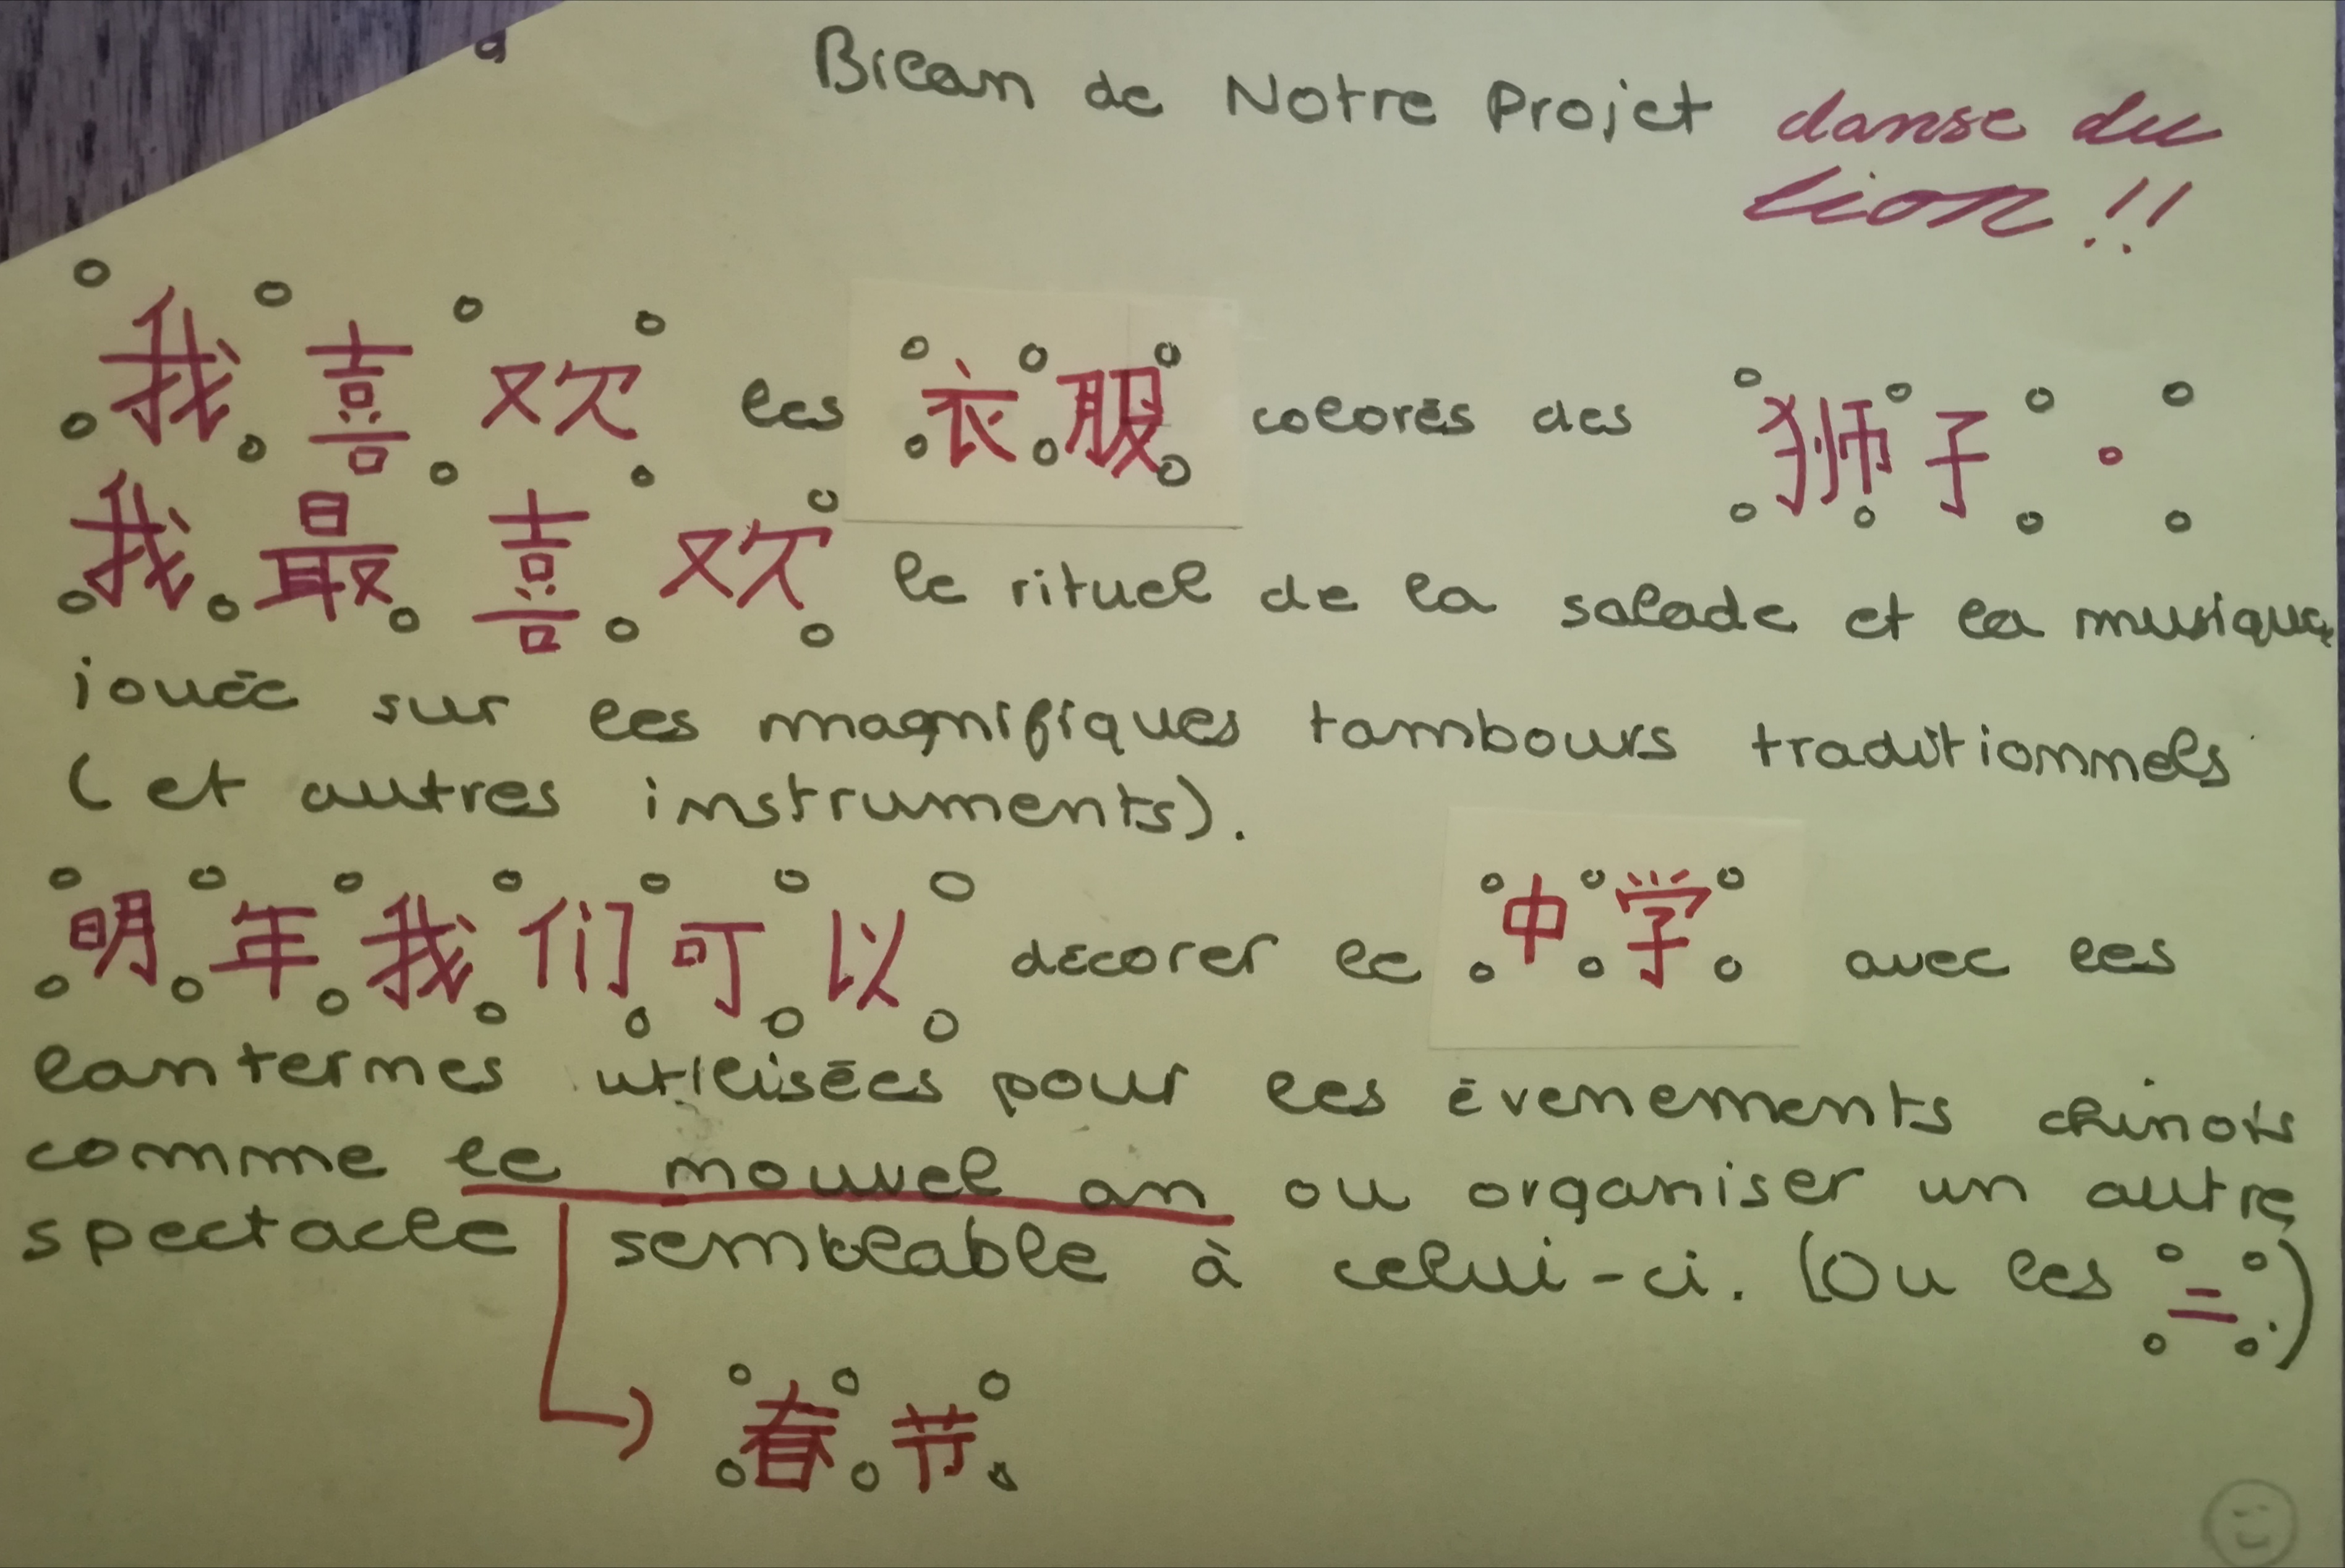 Bilan de Notre Projet danse du
lion !!
我喜欢 les 衣服 colorés des 狮子。
我最喜欢 le rituel de la salade et la musique
jouée sur les magnifiques tambours traditionnels
(et autres instruments).
明年我们可以 décorer le 中学 avec les
lanternes utilisées pour les évenements chinois
comme le nouvel an ou organiser un autre
spectacle semblable à celui-ci. (Ou les 二.)
春节